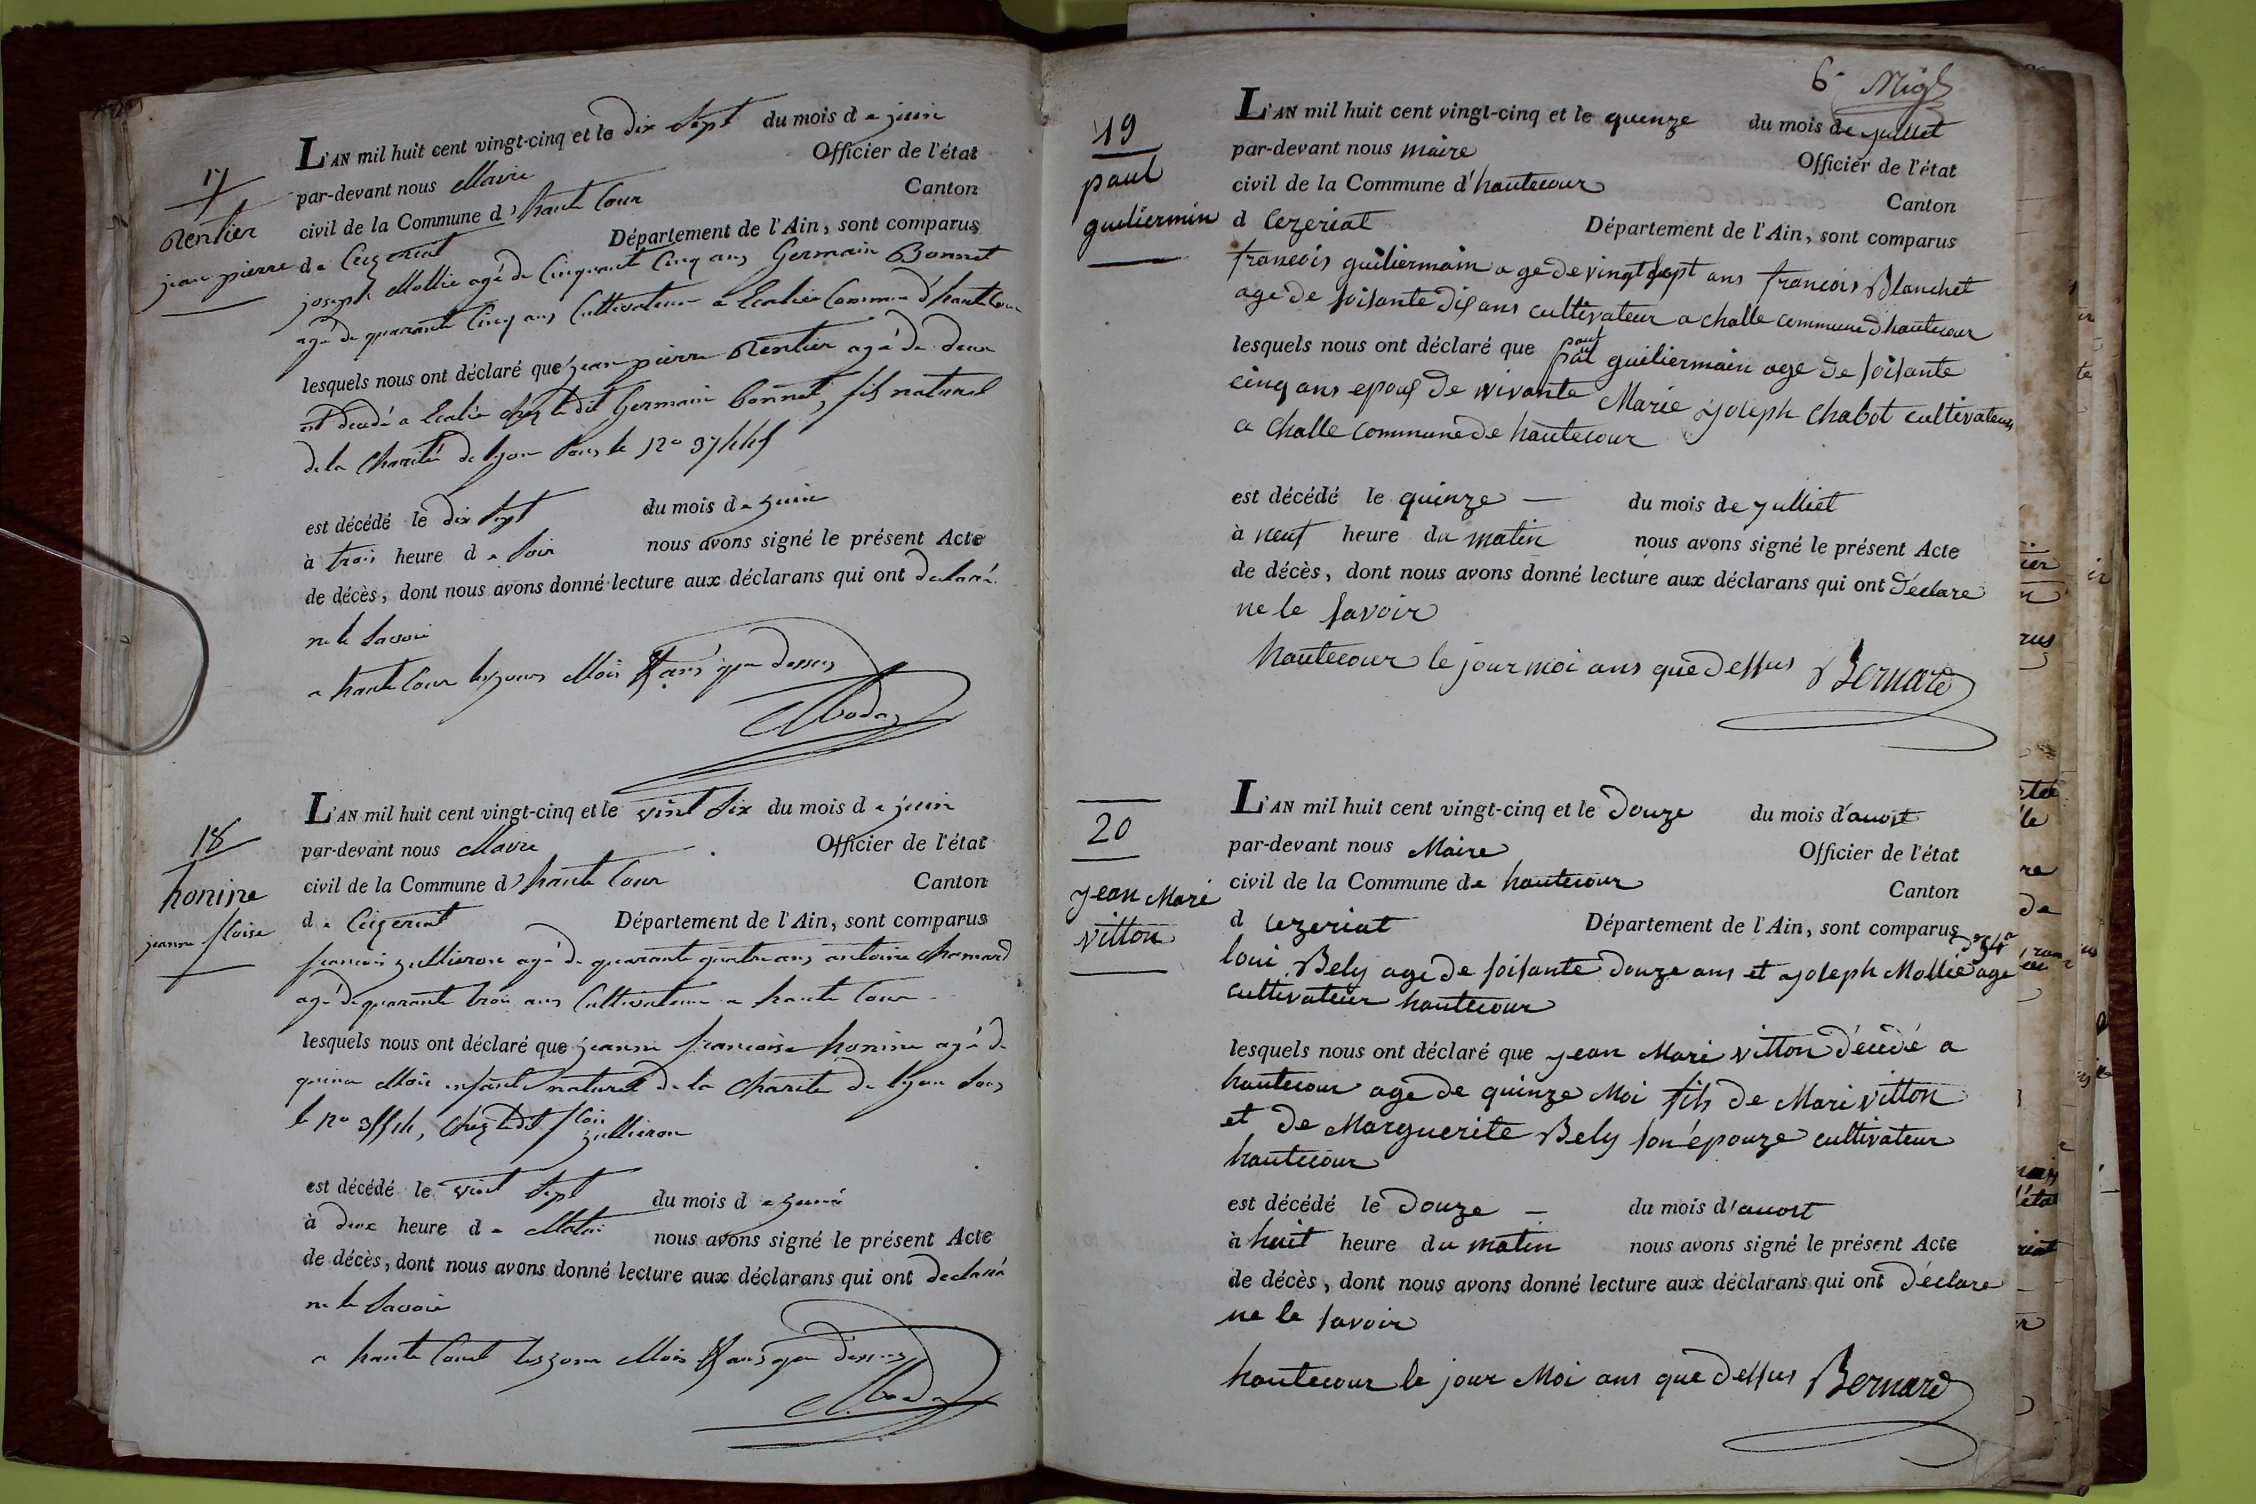 17
Rentier
jean pierre
L'AN mil huit cent vingt-cinq et le dix Sept du mois de juin
par-devant nous Maire Officier de l'état
civil de la Commune d'haute Cour Canton
de Ceyzeriat Département de l'Ain, sont comparus
joseph Mollie agé de Cinquante Cinq ans Germain Bonnet
agé de quarante Cinq ans Cultivateur a Commune d'haute Cour
lesquels nous ont déclaré que jean pierre Rentier agé de deux
est decedé a chez le dit Germain bonnet, fils naturel
de la Charité de lyon Sous le No
est décédé le dix Sept du mois de juin
à trois heure de Soir nous avons signé le présent Acte
de décès, dont nous avons donné lecture aux déclarans qui ont declaré
ne le Savoir
a haute Cour les jours Mois & ans que dessus
18
honine
jeanne
L'AN mil huit cent vingt-cinq et le vint Six du mois de juin
par-devant nous Maire Officier de l'état
civil de la Commune d'haute Cour Canton
de Ceyzeriat Département de l'Ain, sont comparus
francois zullieron agé de quarante quatre ans antoine Chamard
agé de quarante trois ans Cultivateur a haute Cour
lesquels nous ont déclaré que jeanne francoise honine agé de
Mois enfants naturel de la Charite de lyon Sous
le No chez le dit zullieron
est décédé le vint Sept du mois de
à deux heure de Matin nous avons signé le présent Acte
de décès, dont nous avons donné lecture aux déclarans qui ont declaré
ne le Savoir
a haute Court les jour Mois & ans que dessus
6e
19
paul
guiliermin
L'AN mil huit cent vingt-cinq et le quinze du mois de juillet
par-devant nous maire Officier de l'état
civil de la Commune d'hautecour Canton
d Cezeriat Département de l'Ain, sont comparus
francois guiliermain age de vingt sept ans francois Blanchet
age de soisante dix ans cultivateur a challe commune d hautecour
lesquels nous ont déclaré que paul guiliermain age de soisante
cinq ans epoux de vivante Marie joseph Chabot cultivateur
a challe commune de hautecour
est décédé le quinze — du mois de julliet
à neuf heure du matin nous avons signé le présent Acte
de décès, dont nous avons donné lecture aux déclarans qui ont déclare
ne le savoir
hautecour le jour moi ans que dessus Bernard
20
jean Mari
vitton
L'AN mil huit cent vingt-cinq et le Douze du mois d'auost
par-devant nous Maire Officier de l'état
civil de la Commune de hautecour Canton
d Cezeriat Département de l'Ain, sont comparus
loui Bely age de soisante Douze ans et joseph Mollie age
cultivateur hautecour
lesquels nous ont déclaré que jean Mari vitton décédé a
hautecour age de quinze Moi fils de Mari vitton
et de Marguerite Bely son épouze cultivateur
hautecour
est décédé le Douze — du mois d'auost
à huit heure du matin nous avons signé le présent Acte
de décès, dont nous avons donné lecture aux déclarans qui ont déclare
ne le savoir
hautecour le jour Moi ans que dessus Bernard